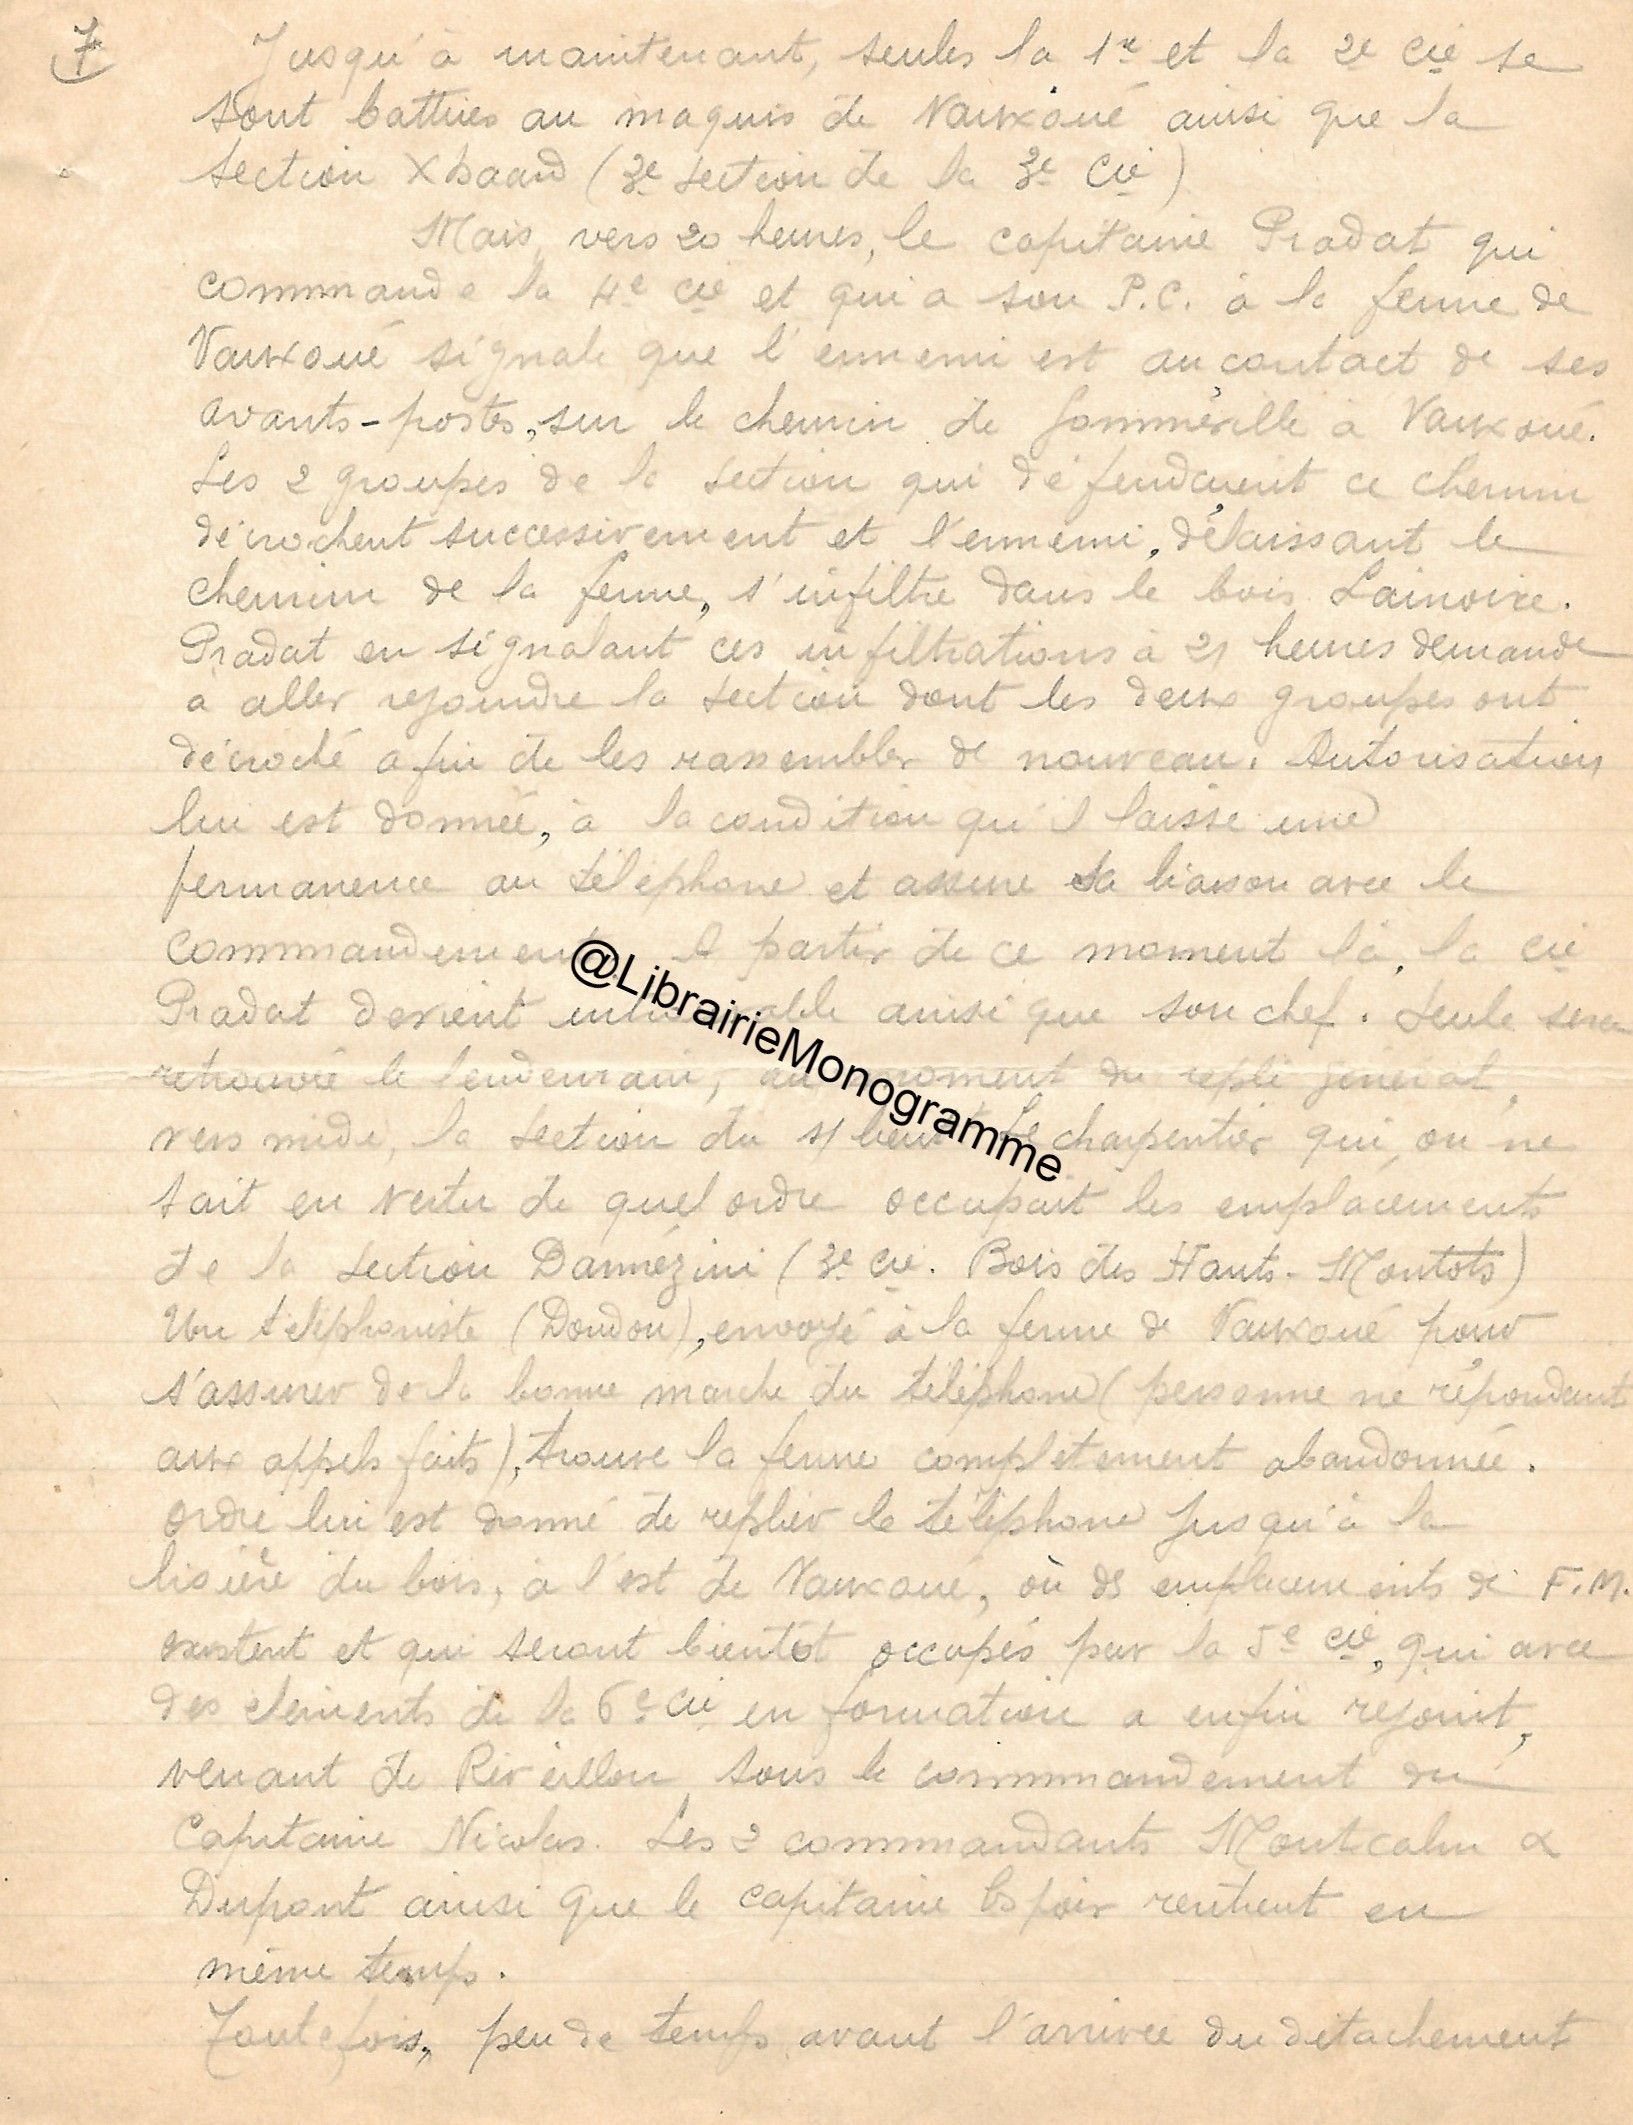 7
Jusqu'à maintenant, seules la 1re et la 2e Cie se
sont battues au maquis de Vauxoué ainsi que la
section Xbaard (3e section de la 3e Cie)
Mais, vers 20 heures, le capitaine Pradat qui
commande la 4e Cie et qui a son P.C. à la ferme de
Vauxoué signale que l'ennemi est au contact de ses
avants-postes, sur le chemin de Gomméville à Vauxoué.
Les 2 groupes de la section qui défendaient ce chemin
décrochent successivement et l'ennemi, délaissant le
chemin de la ferme, s'infiltre dans le bois Lainoire.
Pradat en signalant ces infiltrations à 21 heures demande
à aller rejoindre la section dont les deux groupes ont
décroché afin de les rassembler de nouveau. Autorisation
lui est donnée, à la condition qu'il laisse une
permanence au téléphone et assure sa liaison avec le
commandement. A partir de ce moment là, la Cie
Pradat devient introuvable ainsi que son chef. Seule sera
retrouvée le lendemain, au moment du repli général,
vers midi, la section du s/lieut Lecharpentier qui, on ne
sait en vertu de quel ordre occupait les emplacements
de la section Dannézini (3e Cie. Bois des Hauts-Montots)
Un téléphoniste (Doudou), envoyé à la ferme de Vauxoué pour
s'assurer de la bonne marche du téléphone (personne ne répondant
aux appels faits), trouve la ferme complètement abandonnée.
Ordre lui est donné de replier le téléphone jusqu'à la
lisière du bois, à l'est de Vauxoué, où ds emplacements de F.M.
existent et qui seront bientôt occupés par la 5e Cie, qui avec
des éléments de la 6e Cie en formation a enfin rejoint,
venant de Réveillon sous le commandement du
Capitaine Nicolas. Les 2 commandants Montcalm &
Dupont ainsi que le capitaine Espoir rentrent en
même temps.
Toutefois, peu de temps avant l'arrivée du détachement
@LibrairieMonogramme